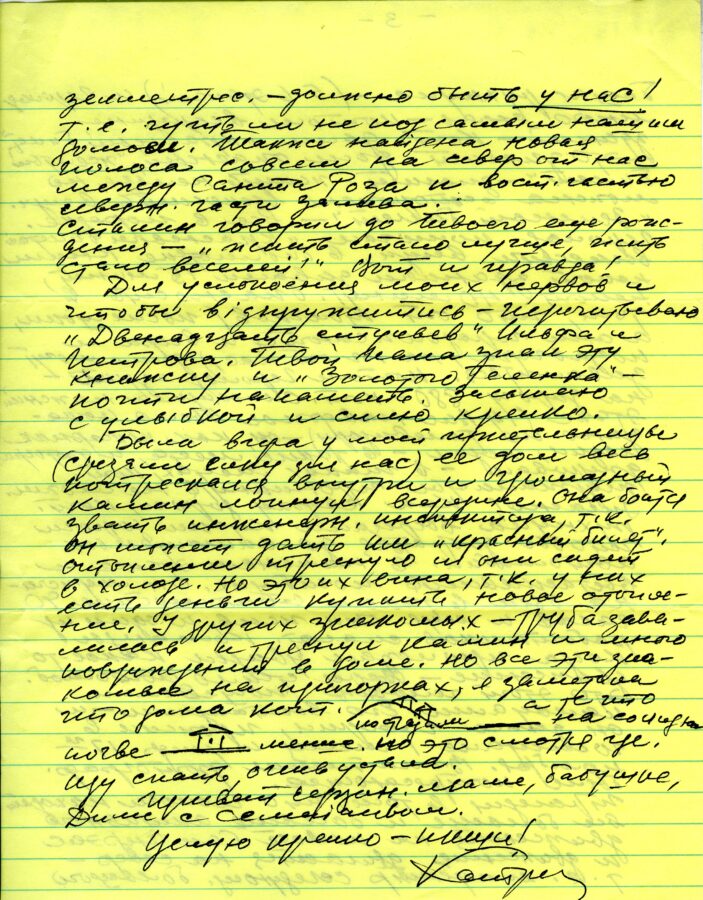 землетряс. – должно быть у нас!
т.е. чуть ли не под самым нашим
домом. Также найдена новая
полоса совсем на север от нас
между Санта Роза и вост. частью
северн. части залива.
Сталин говорил до Твоего еще рож-
дения – „жить стало лучше, жить
стало веселей!" Вот и правда!
Для успокоения моих нервов и
чтобы – перечитываю
„Двенадцать стульев" Ильфа и
Петрова. Твой папа знал эту
книжку и „Золотого теленка" –
почти на память. Засыпаю
с улыбкой и сплю крепко.
Была вчера у моей приятельницы
(срезали елку для нас) ее дом весь
потрескался внутри и громадный
камин лопнул всередине. Она боится
звать инженерн. инспектора, т.к.
он может дать им „красный билет".
Отопление треснуло и они сидят
в холоде. Но это их вина, т.к. у них
есть деньги купить новое отопле-
ние. У других знакомых – труба зава-
лилась и треснул камин и много
повреждений в доме. Но все эти зна-
комые на пригорках, я заметила
что дома кот. пострадали а те что на
почве менее. Но это смотря где.
Иду спать, очень устала.
Привет сердечн. маме, бабушке,
Диме с семейством.
Целую крепко – пиши!